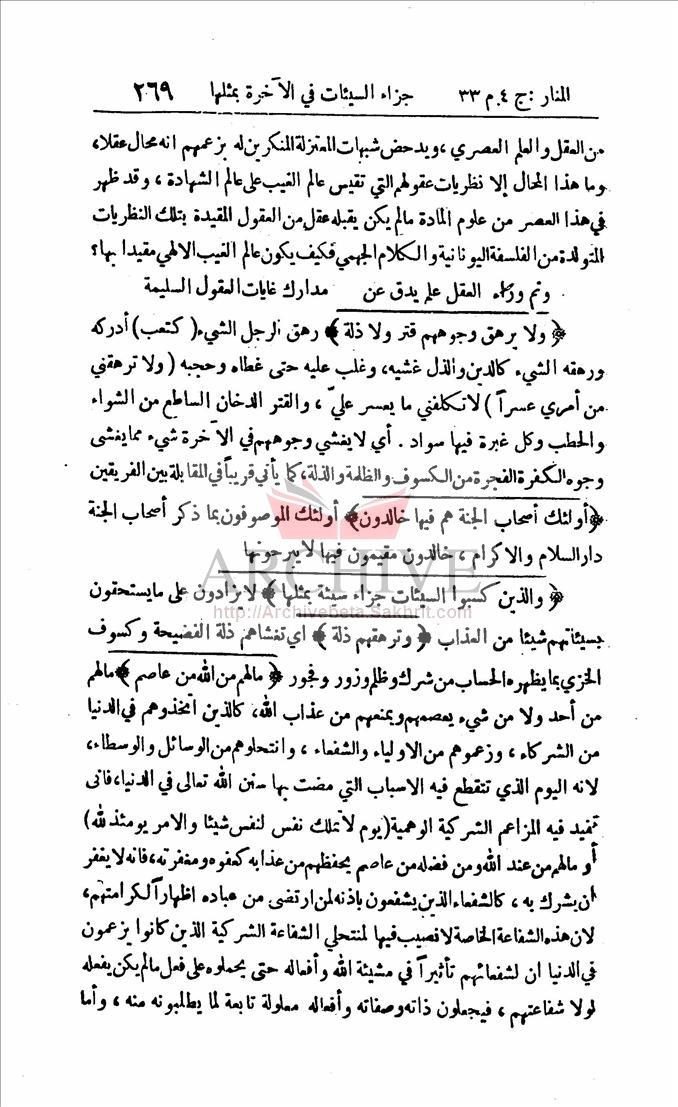 المنار : ج ٤ م ٣٣ جزاء السيئات في الآخرة بمثلها ٢٦٩
من العقل والعلم العصري ، ويدحض شبهات المعتزلة المنكرين له بزعمهم انه محال عقلا،
وما هذا المحال إلا نظريات عقولهم التي تقيس عالم الغيب على عالم الشهادة ، وقد ظهر
في هذا العصر من علوم المادة مالم يكن يقبله عقل من العقول المقيدة بتلك النظريات
المتولدة من الفلسفة اليونانية والكلام الجهمي فكيف يكون عالم الغيب الالهي مقيدا بها؟
وثم وراء العقل علم يدق عن مدارك غايات العقول السليمة
﴿ ولا يرهق وجوههم قتر ولا ذلة ﴾ رهق الرجل الشيء ( كتعب ) أدركه
ورهقه الشيء كالدين والذل غشيه، وغلب عليه حتى غطاه وحجبه ( ولا ترهقني
من أمري عسراً ) لا تكلفني ما يعسر عليّ ، والقتر الدخان الساطع من الشواء
والحطب وكل غبرة فيها سواد . أي لا يغشي وجوههم في الآخرة شيء مما يغشى
وجوه الكفرة الفجرة من الكسوف والظلمة والذلة، كما يأتي قريباً في المقابلة بين الفريقين
﴿ أولئك أصحاب الجنة هم فيها خالدون ﴾ أولئك الموصوفون بما ذكر أصحاب الجنة
دار السلام والاكرام ، خالدون مقيمون فيها لا يبرحونها
ARCHIVE
﴿ والذين كسبوا السيئات جزاء سيئة بمثلها ﴾ لا يزادون على ما يستحقون
http://Archivebeta.Sakhrit.com
بسيئاتهم شيئا من العذاب ﴿ وترهقهم ذلة ﴾ اي تغشاهم ذلة الفضيحة وكسوف
الخزي بما يظهره الحساب من شرك وظلم وزور وفجور ﴿ مالهم من الله من عاصم ﴾ مالهم
من أحد ولا من شيء يعصمهم ويمنعهم من عذاب الله، كالذين اتخذوهم في الدنيا
من الشركاء ، وزعموهم من الاولياء والشفعاء ، وانتحلوهم من الوسائل والوسطاء،
لانه اليوم الذي تنقطع فيه الاسباب التي مضت بها سنن الله تعالى في الدنيا، فانى
تفيد فيه المزاعم الشركية الوهمية (يوم لا تملك نفس لنفس شيئا والامر يومئذ لله)
أو مالهم من عند الله ومن فضله من عاصم يحفظهم من عذابه كعفوه ومغفرته، فانه لا يغفر
أن يشرك به ، كالشفعاء الذين يشفعون باذنه لمن ارتضى من عباده اظهاراً لكرامتهم،
لان هذه الشفاعة الخاصة لا نصيب فيها لمنتحلي الشفاعة الشركية الذين كانوا يزعمون
في الدنيا ان لشفعائهم تأثيراً في مشيئة الله وأفعاله حتى يحملوه على فعل مالم يكن يفعله
لولا شفاعتهم ، فيجعلون ذاته وصفاته وأفعاله معلولة تابعة لما يطلبونه منه ، وأما